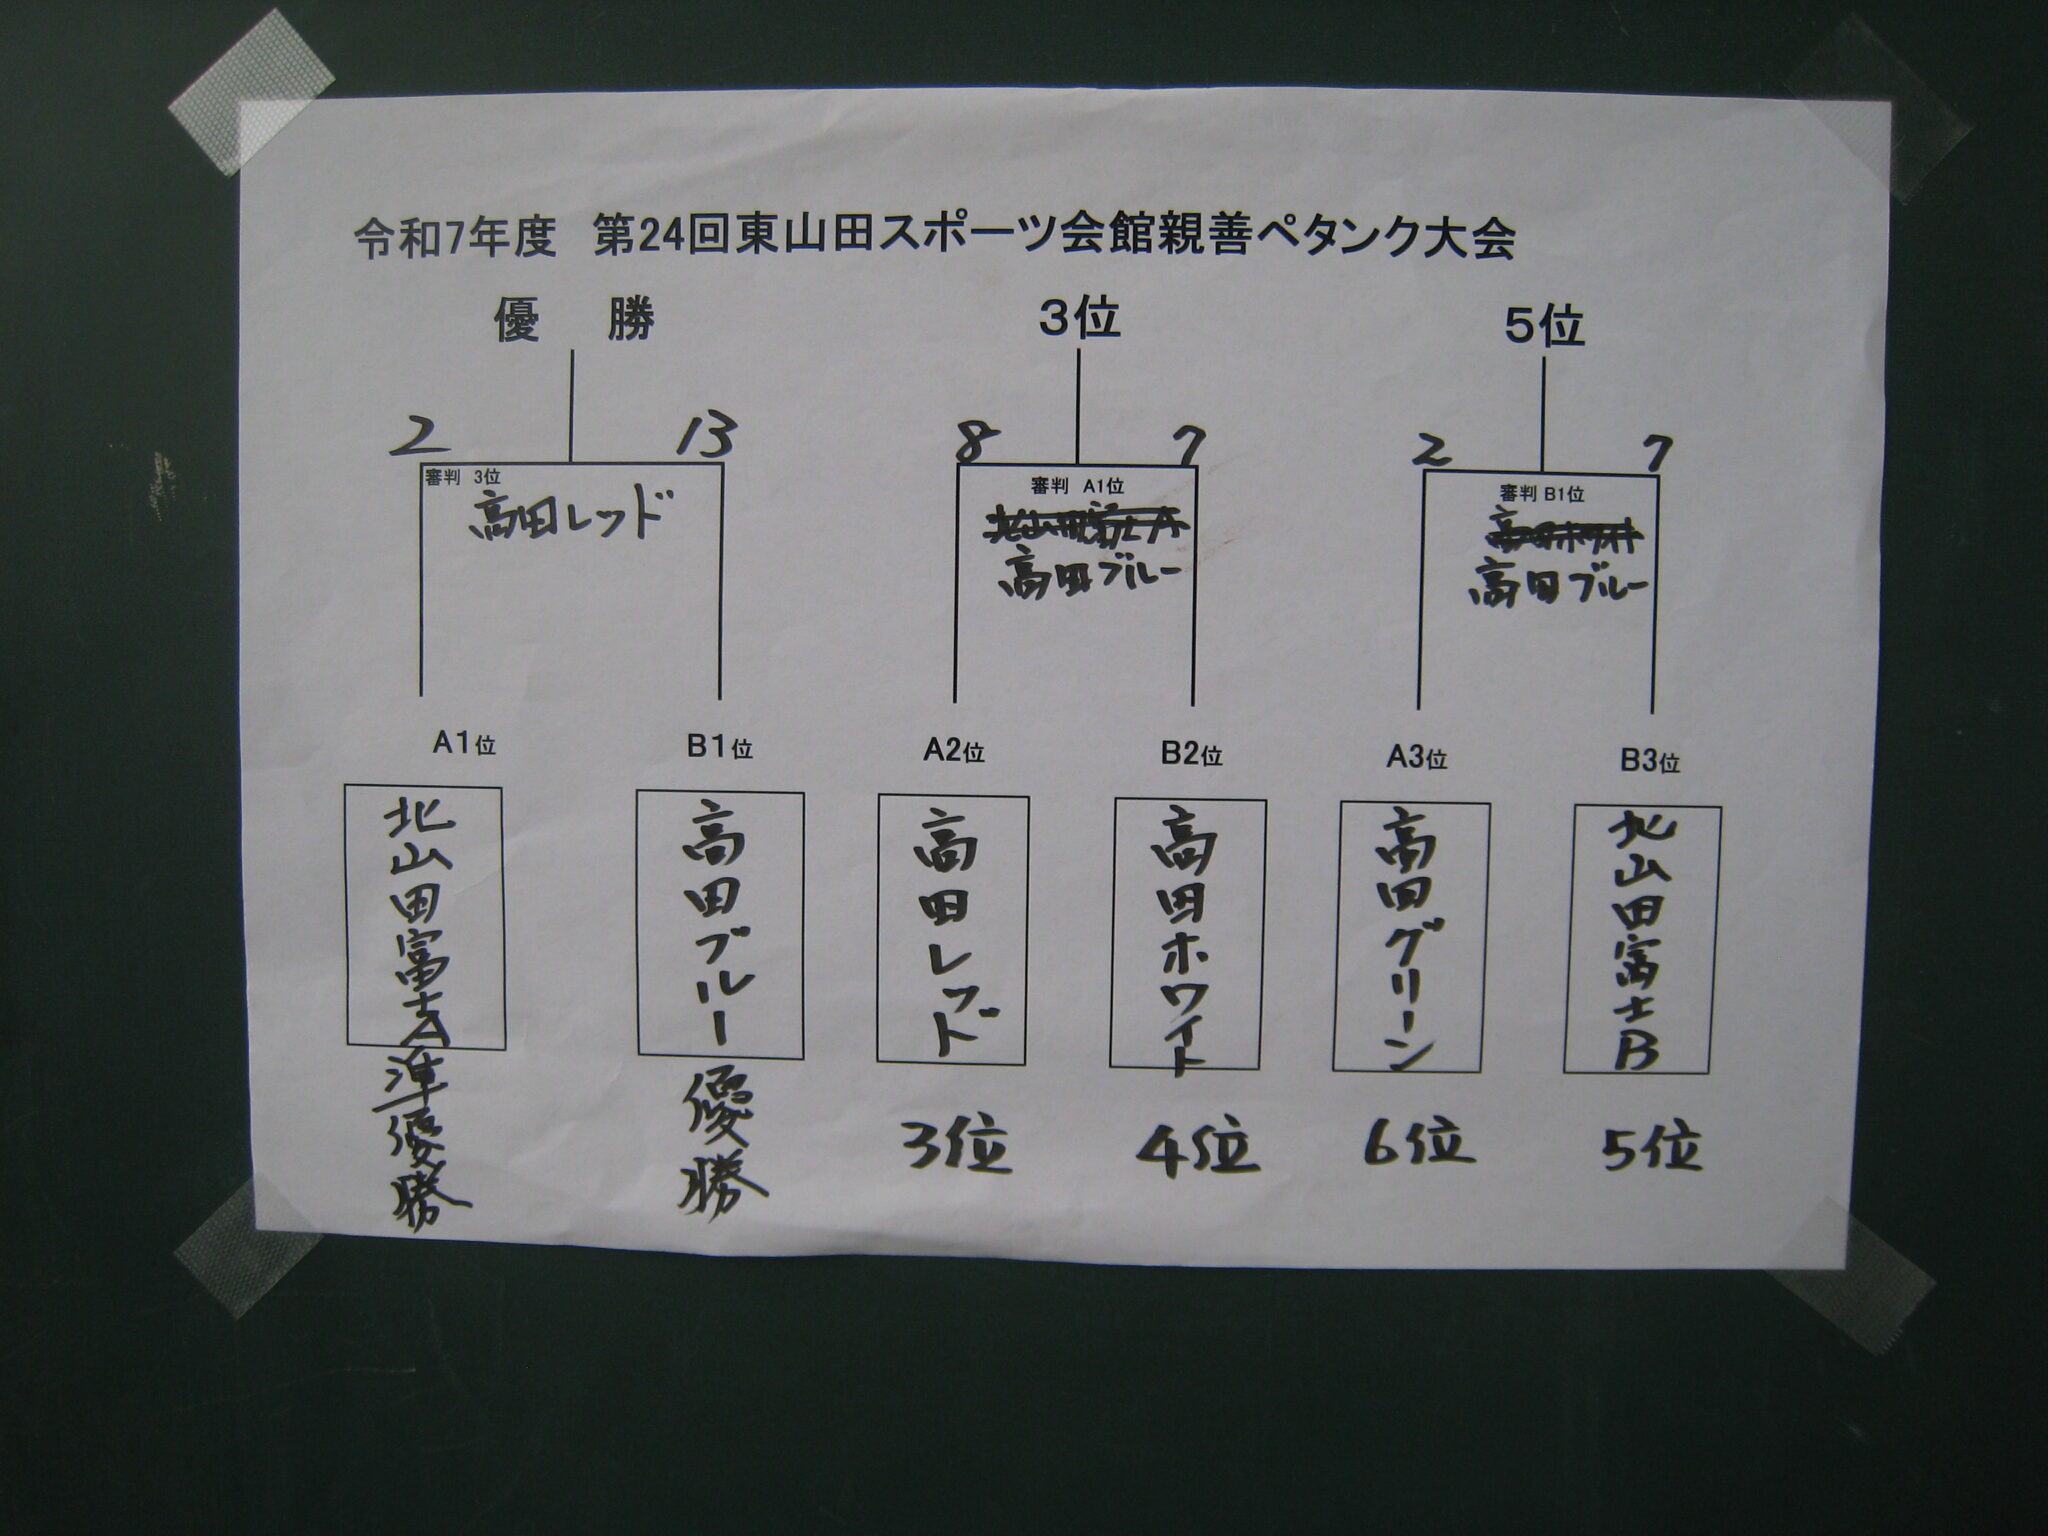 令和7年度　第24回東山田スポーツ会館親善ペタンク大会
優　勝
3位
5位
2
13
8
7
2
7
審判　3位
高田レッド
審判　A1位
高田ブルー
審判 B1位
高田ブルー
A1位
B1位
A2位
B2位
A3位
B3位
北山田富士A
高田ブルー
高田レッド
高田ホワイト
高田グリーン
北山田富士B
準優勝
優勝
3位
4位
6位
5位